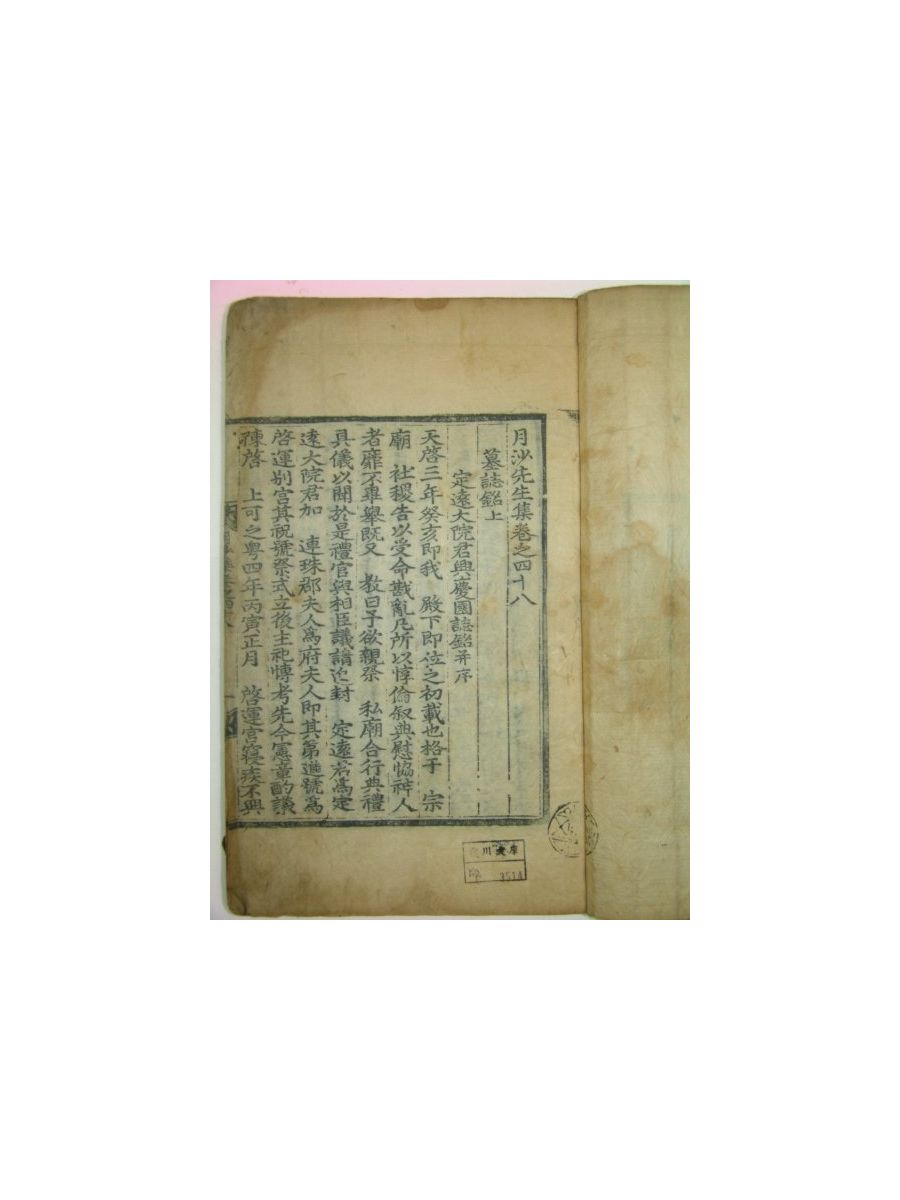 月沙先生集卷之四十八
墓誌銘上
定遠大院君興慶園誌銘并序
天啓三年癸亥即我 殿下即位之初載也格于 宗
廟 社稷告以受命戡亂凡所以惇倫叙典慰恊神人
者靡不畢舉既又 教曰予欲親祭 私廟合行典禮
具儀以聞於是禮官與相臣議請追封 定遠君爲定
遠大院君加 連珠郡夫人爲府夫人即其第進號爲
啓運別宮其祝號祭式立後主祀博考先今憲章酌議
陳啓 上可之粤四年丙寅正月 啓運宮寢疾不興
川文庫
3514